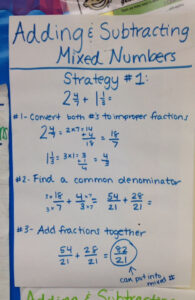 Adding & Subtracting
Mixed Numbers
Strategy #1:
2 4/7 + 1 1/3 =
#1- Convert both #s to improper fractions
2 4/7 = 2×7=14
+4
18 = 18/7
1 1/3 = 3×1=3
+1
4 = 4/3
#2- Find a common denominator
3× 18/7 ×3 + 4/3 ×7 = 54/21 + 28/21 =
#3- Add fractions together
54/21 + 28/21 = 82/21
can put into
mixed #
Adding & Subtrac